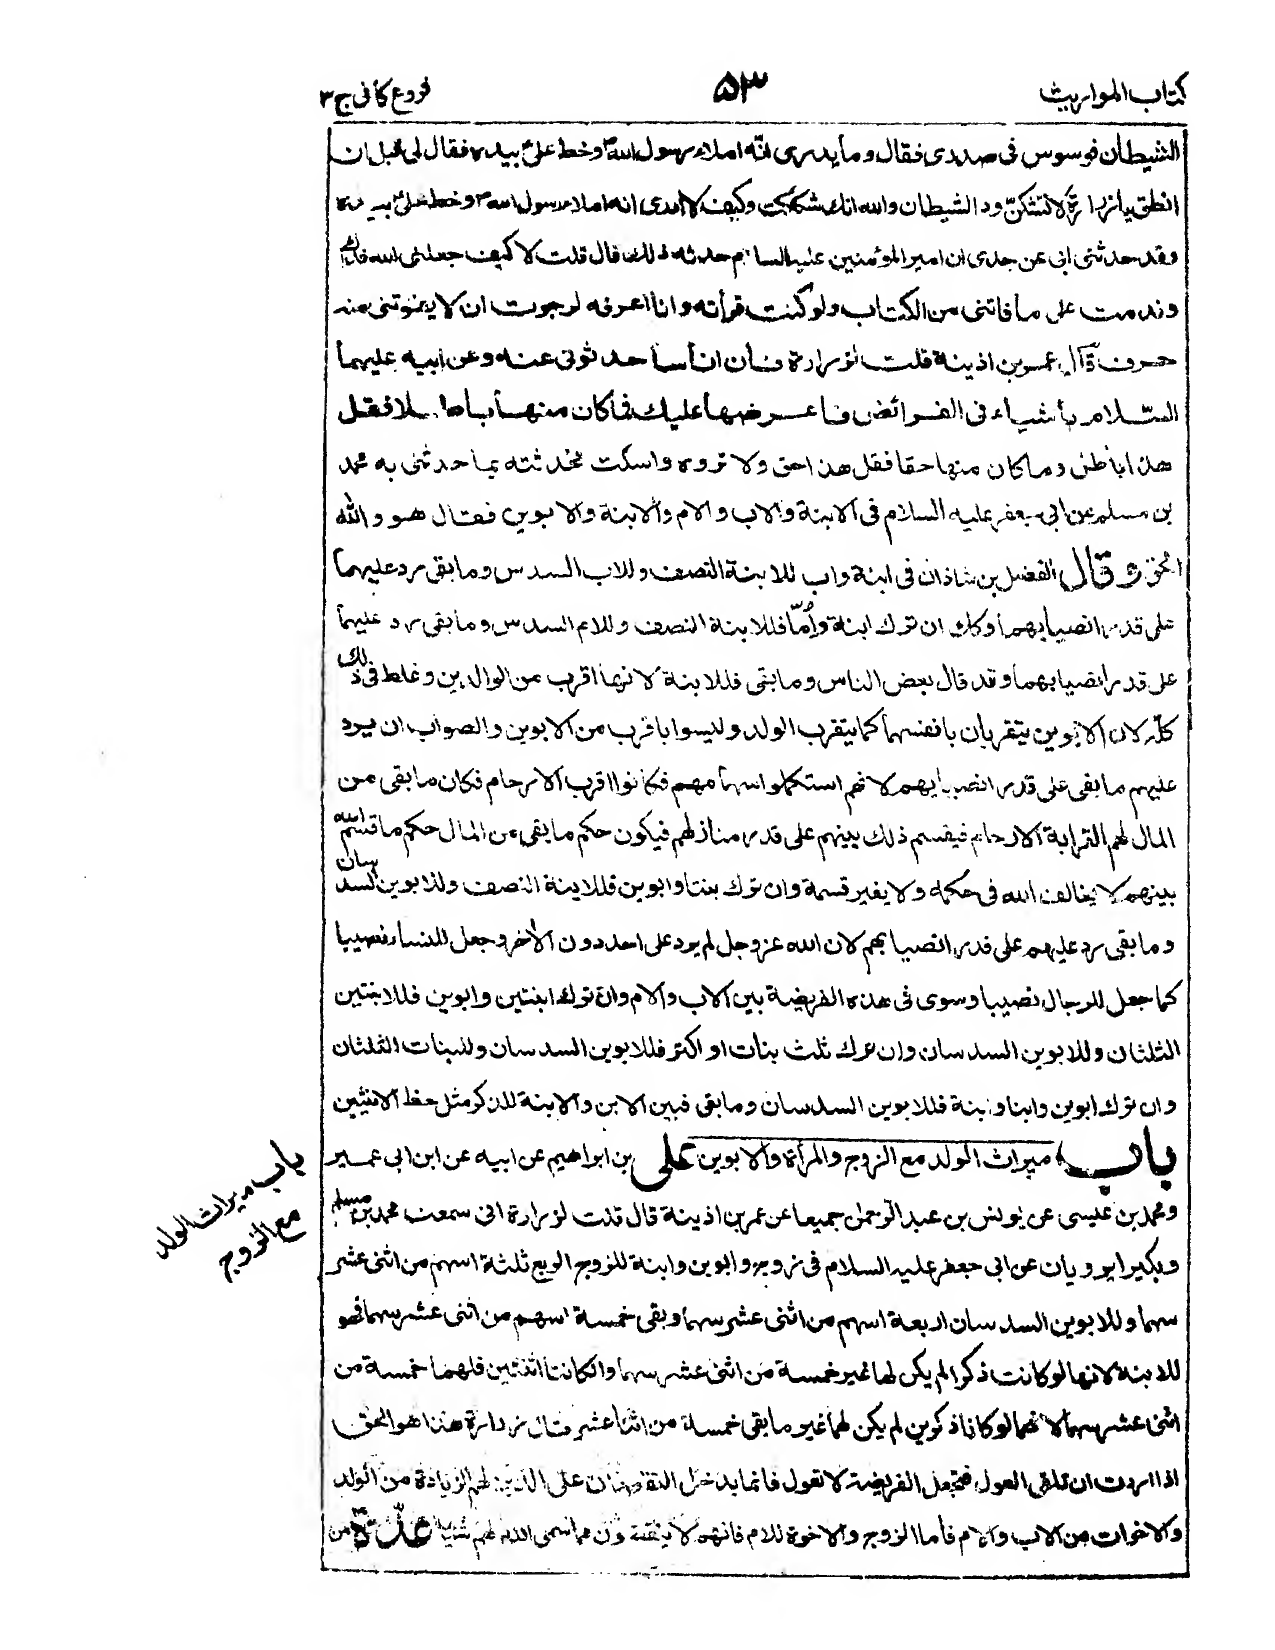 كتاب المواريث
۵۳
فروع كافى ج ۳
الشيطان فوسوس فى صدرى فقال وما يدرى انّه املاء رسول الله ص وخط على ع بيده فقال لى قبل ان
انطق يا زرارة لا تشكنّ ود الشيطان والله انك شككت وكيف لا ادرى انه املاء رسول الله ص وخط على ع بيده
وقد حدثنى ابى عن جدى ان امير المؤمنين عليه السلام حدثه ذلك قال قلت لا كيف جعلنى الله فداك
وندمت على ما فاتنى من الكتاب ولو كنت قرأته وانا اعرفه لرجوت ان لا يفوتنى منه
حرف قال عمر بن اذينة قلت لزرارة فان اناسا حدثونى عنه وعن ابيه عليهما
السّلام بأشياء فى الفرائض فاعرضها عليك فما كان منها باطلا فقل
هذا باطل وما كان منها حقا فقل هذا حق ولا تروه واسكت فحدثته بما حدثنى به محمد
بن مسلم عن ابى جعفر عليه السلام فى الابنة والاب والام والابنة والابوين فقال هو والله
الحق وقال الفضل بن شاذان فى ابنة واب للابنة النصف وللاب السدس وما بقى رد عليهما
على قدر انصبايهما وكك ان ترك ابنة وأمّا فللابنة النصف وللام السدس وما بقى رد عليهما
على قدر انصبايهما وقد قال بعض الناس وما بقى فللابنة لانها اقرب من الوالدين وغلط فى ذلك
كلّه لان الابوين يتقربان بانفسهما كما يتقرب الولد وليسوا باقرب من الابوين والصواب ان يرد
عليهم ما بقى على قدر انصبايهم لانهم استكملوا سهامهم فكانوا اقرب الارحام فكان ما بقى من
المال لهم القرابة الارحام فيقسم ذلك بينهم على قدر منازلهم فيكون حكم ما بقى من المال حكم ما قسم الله
بينهم لا يخالف الله فى حكمه ولا يغير قسمة وان ترك بنتا وابوين فللابنة النصف وللابوين السدسان
وما بقى رد عليهم على قدر انصبايهم لان الله عز وجل لم يرد على احد دون الآخر وجعل للنساء نصيبا
كما جعل للرجال نصيبا وسوى فى هذه الفريضة بين الاب والام وان ترك ابنتين وابوين فللابنتين
الثلثان وللابوين السدسان وان ترك ثلث بنات او اكثر فللابوين السدسان وللبنات الثلثان
وان ترك ابوين وابنا وابنة فللابوين السدسان وما بقى فبين الابن والابنة للذكر مثل حظ الانثيين
باب ميراث الولد مع الزوج والمرأة والابوين على بن ابراهيم عن ابيه عن ابن ابى عمير
باب ميراث الولد
مع الزوج
ومحمد بن عيسى عن يونس بن عبد الرّحمن جميعا عن عمر بن اذينة قال قلت لزرارة انى سمعت محمد بن مسلم
وبكيرا يرويان عن ابى جعفر عليه السلام فى زوج وابوين وابنة للزوج الربع ثلثة اسهم من اثنى عشر
سهما وللابوين السدسان اربعة اسهم من اثنى عشر سهما وبقى خمسة اسهم من اثنى عشر سهما فهو
للابنة لانها لو كانت ذكرا لم يكن لها غير خمسة من اثنى عشر سهما وان كانتا اثنتين فلهما خمسة من
اثنى عشر سهما لانهما لو كانا ذكرين لم يكن لهما غير ما بقى خمسة من اثنا عشر قال زرارة هذا هو الحق
اذا اردت ان تلقى العول فتجعل الفريضة لا تعول فانما يدخل النقصان على الذين لهم الزيادة من الولد
والاخوات من الاب والام فاما الزوج والاخوة للام فانهم لا ينقصون مما سمى الله لهم شيئا عدّة من